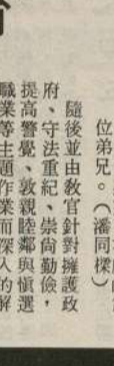 位弟兄。（潘同樑）
隨後並由教官針對擁護政
府、守法重紀、崇尚勤儉，
提高警覺、敦親睦鄰與慎選
職業等主題作業而深入的解